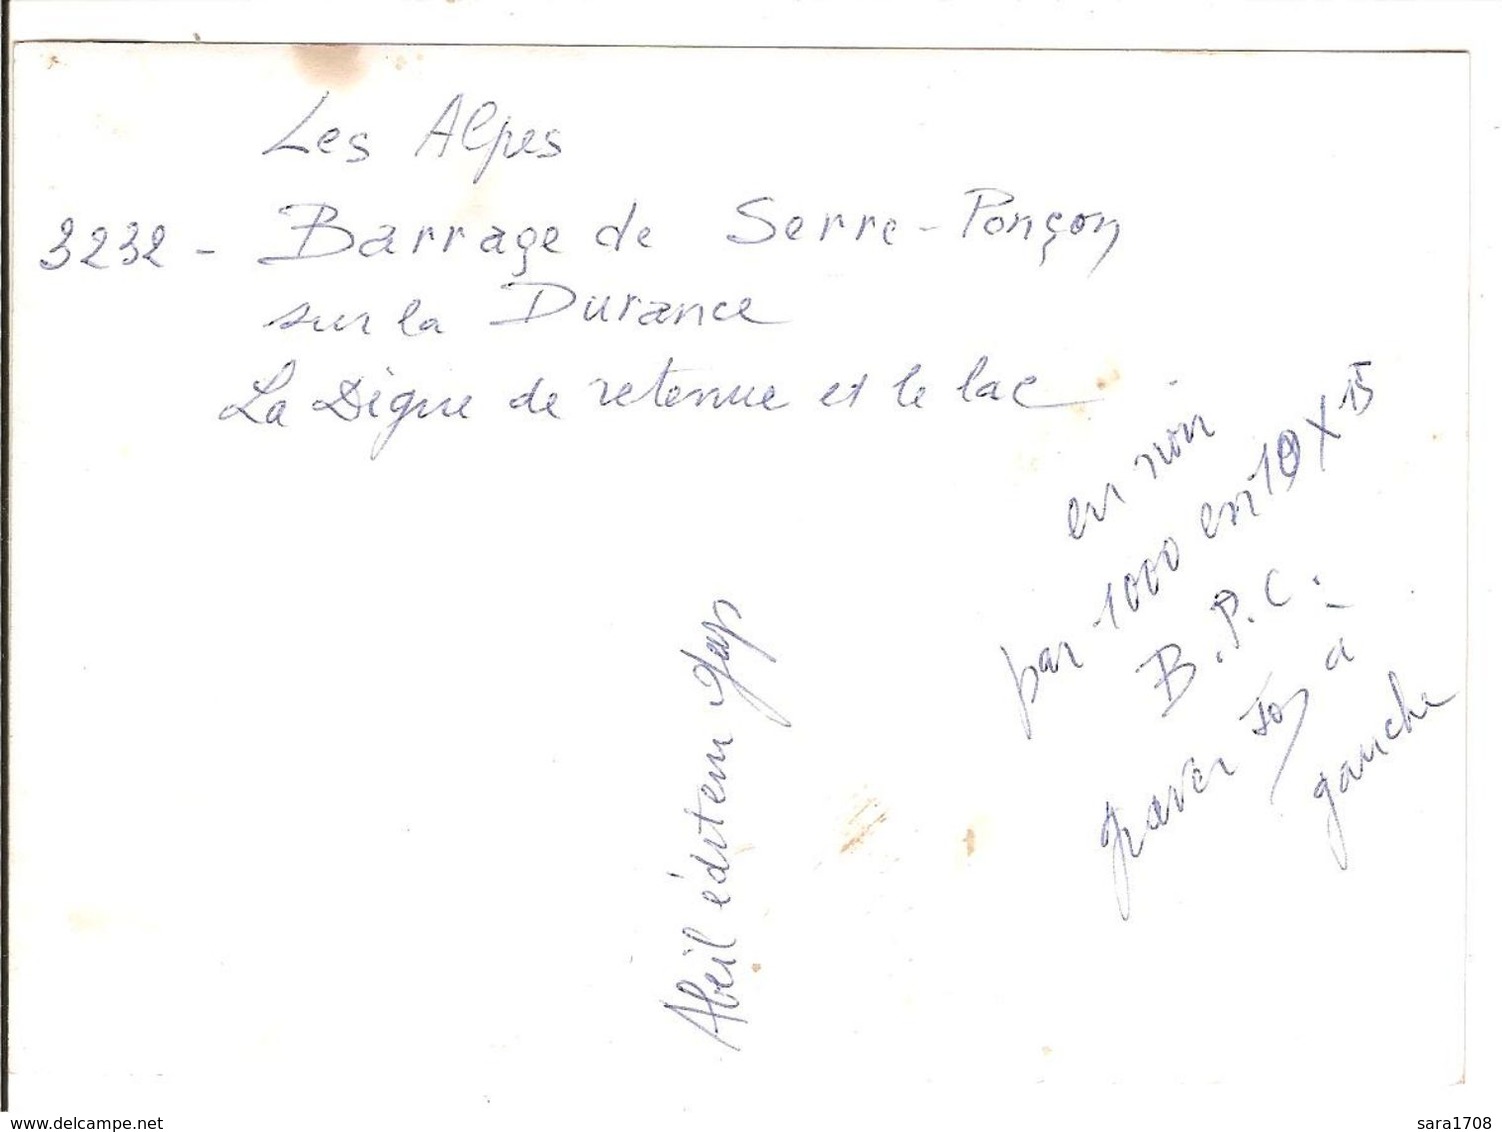 Les Alpes
3232 - Barrage de Serre-Ponçon
sur la Durance
La Digue de retenue et le lac
en noir
par 1000 en 10 X 15
B.P.C.
graver à
gauche
Abeil éditeur Gap
www.delcampe.net
sara1708